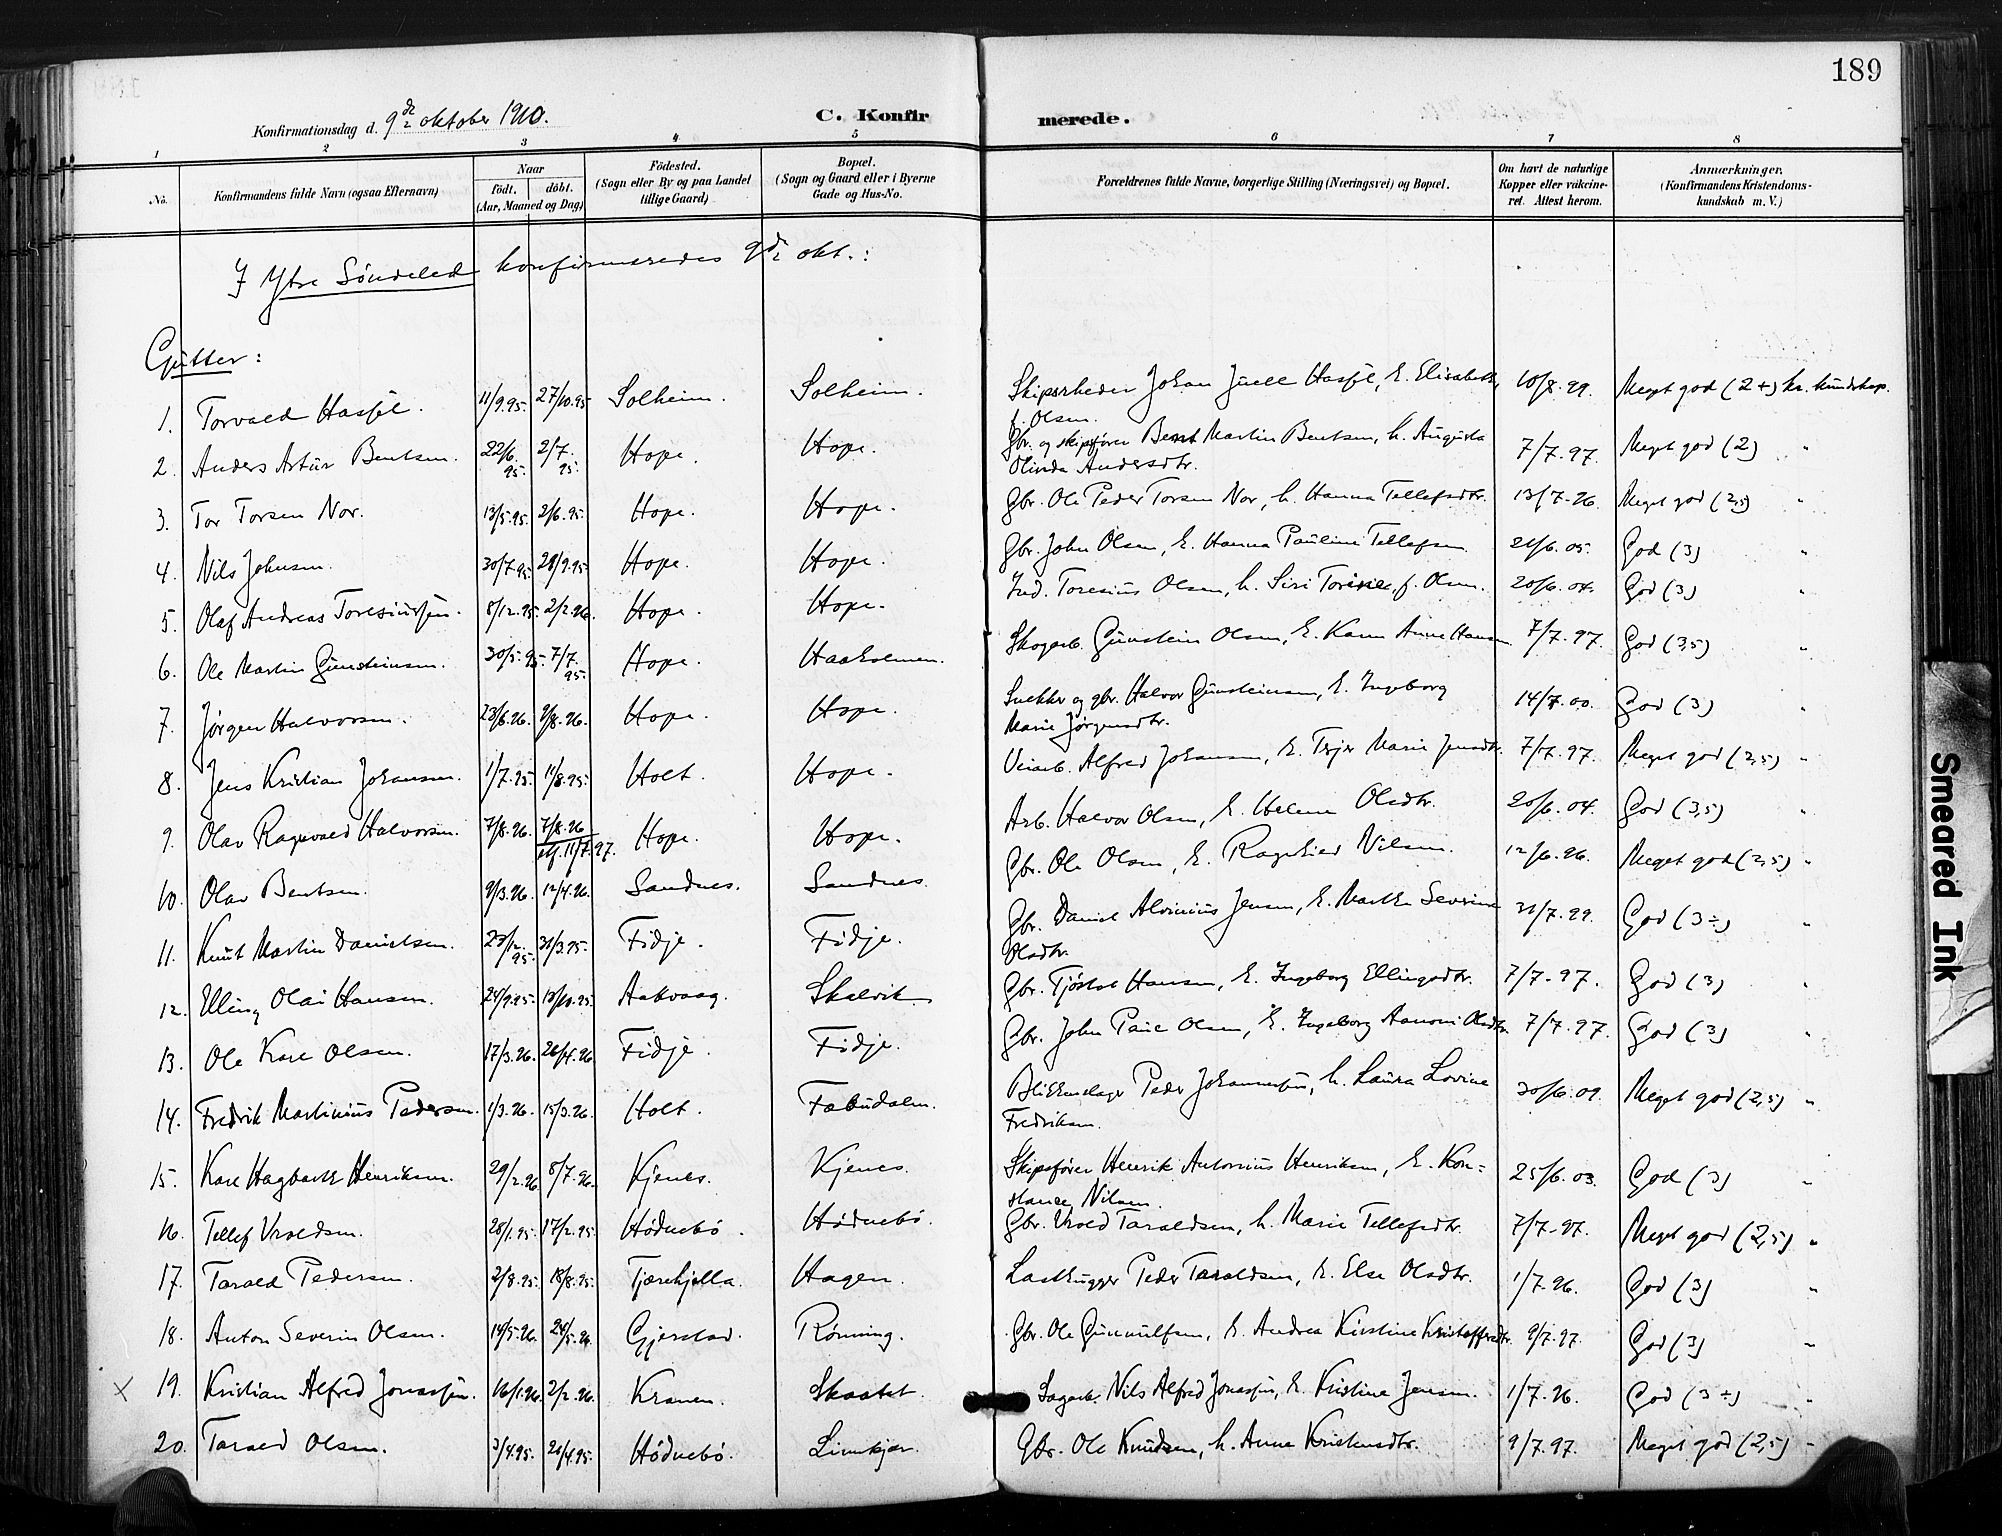 189
Konfirmationsdag d. 9de oktober 1910.
C. Konfirmerede.
1 2 3 4 5 6 7 8
No.
Konfirmandens fulde Navn (ogsaa Efternavn)
Naar
födt. döbt.
(Aar, Maaned og Dag)
Födested.
(Sogn eller By og paa Landet
tillige Gaard)
Bopæl.
(Sogn og Gaard eller i Byerne
Gade og Hus-No.
Forældrenes fulde Navne, borgerlige Stilling (Næringsvei) og Bopæl.
Om havt de naturlige
Kopper eller vakcine-
ret. Attest herom.
Anmærkninger.
(Konfirmandens Kristendoms-
kundskab m. V.)
I Ytre Søndeled konfirmeredes 9de okt.:
Gutter:
1. Torvald Hassel. 11/9.95. 27/10.95 Solheim. Solheim. Skipsrheder Johan Juell Hassel, E. Elisabeth, 10/8.99. Meget god (2+) kr. kundskap.
f. Olsen.
2. Anders Artur Bentsen. 22/6.95. 2/7.95. Hope. Hope. Gbr. og skipsfører Bent Martin Bentsen, h. Augusta 7/7.97. Meget god (2) "
Olinda Andersdtr.
3. Tor Torsen Nor. 13/5.95. 2/6.95. Hope. Hope. Gbr. Ole Peder Torsen Nor, h. Hanna Tellefsdtr. 13/7.96. Meget god (2,5) "
4. Nils Johnsen. 30/7.95. 29/9.95. Hope. Hope. Gbr. John Olsen, E. Hanna Pauline Tellefsen. 21/6.05. God (3) "
5. Olaf Andreas Toresiussen. 8/12.95. 2/2.96. Hope. Hope. Ind. Toresius Olsen, h. Siri Torine, f. Olsen. 20/6.04. God (3) "
6. Ole Martin Gunsteinsen. 30/5.95. 7/7.95. Hope. Haaholmen. Skogarb. Gunstein Olsen, E. Karen Anne Hansen 7/7.97. God (3,5) "
7. Jørgen Halvorsen. 23/6.96. 9/8.96. Hope. Hope. Snekker og gbr. Halvor Gunsteinsen, E. Ingeborg 14/7.00. God (3) "
Marie Jørgensdtr.
8. Jens Kristian Johansen. 1/7.95. 11/8.95. Holt. Hope. Veiarb. Alfred Johansen, E. Terjer Marie Jensdtr. 7/7.97. Meget god (2,5) "
9. Olav Ragnvald Halvorsen. 7/8.96. 7/8.96 Hope. Hope. Arb. Halvor Olsen, E. Helene Olsdtr. 20/6.04. God (3,5) "
stf. 11/7.97.
10. Olav Bentsen. 9/3.96. 12/4.96. Sandnes. Sandnes. Gbr. Ole Olsen, E. Ragnhild Nilsen. 12/6.96. Meget god (2,5) "
11. Knut Martin Danielsen. 23/12.95. 31/3.95. Fidje. Fidje. Gbr. Daniel Alvinius Jensen, E. Marthe Severine 31/7.99. God (3÷) "
Olsdtr.
12. Elling Olai Hansen. 24/9.95. 13/10.95. Aakvaag. Skalvik Gbr. Tjøstol Hansen, E. Ingeborg Ellingsdtr. 7/7.97. God (3) "
13. Ole Karl Olsen. 17/3.96. 26/4.96 Fidje. Fidje. Gbr. John Paul Olsen, E. Ingeborg Aanoni Olsdtr. 7/7.97. God (3) "
14. Fredrik Martinius Pedersen 1/3.96. 15/3.96. Holt. Fabudalen. Blikkenslager Peder Johannesen, h. Laura Lovine 30/6.09. Meget god (2,5) "
Fredriksen.
15. Karl Hagbarth Henriksen. 29/2.96 5/7.96. Kjenes. Kjenes. Skipsfører Henrik Antonius Henriksen, E. Kon= 25/6.03. God (3) "
stance Nilsen.
16. Tellef Vroldsen. 28/1.95. 17/2.95. Hødnebø. Hødnebø. Gbr. Vrold Taraldsen, h. Marie Tellefsdtr. 7/7.97. Meget god (2,5) "
17. Tarald Pedersen. 2/8.95. 18/8.95. Tjærekjella. Hagen. Lasthugger Peder Taraldsen, E. Else Olsdtr. 1/7.96. God (3) "
18. Anton Severin Olsen. 14/5.96. 24/5.96. Gjerstad. Rønning. Gbr. Ole Gunnulfsen, E. Andrea Kirstine Kristoffersdtr. 9/7.97. God (3) "
X 19. Kristian Alfred Jonassen. 16/1.96. 2/2.96. Kranen. Skaatet. Sagarb. Nils Alfred Jonassen, E. Kristine Jensen. 1/7.96. God (3÷) "
20. Tarald Olsen. 3/4.95. 21/4.95. Hødnebø. Limkjær. Gbr. Ole Knudsen, h. Anne Kristensdtr. 9/7.97. Meget god (2,5) "
Smeared Ink